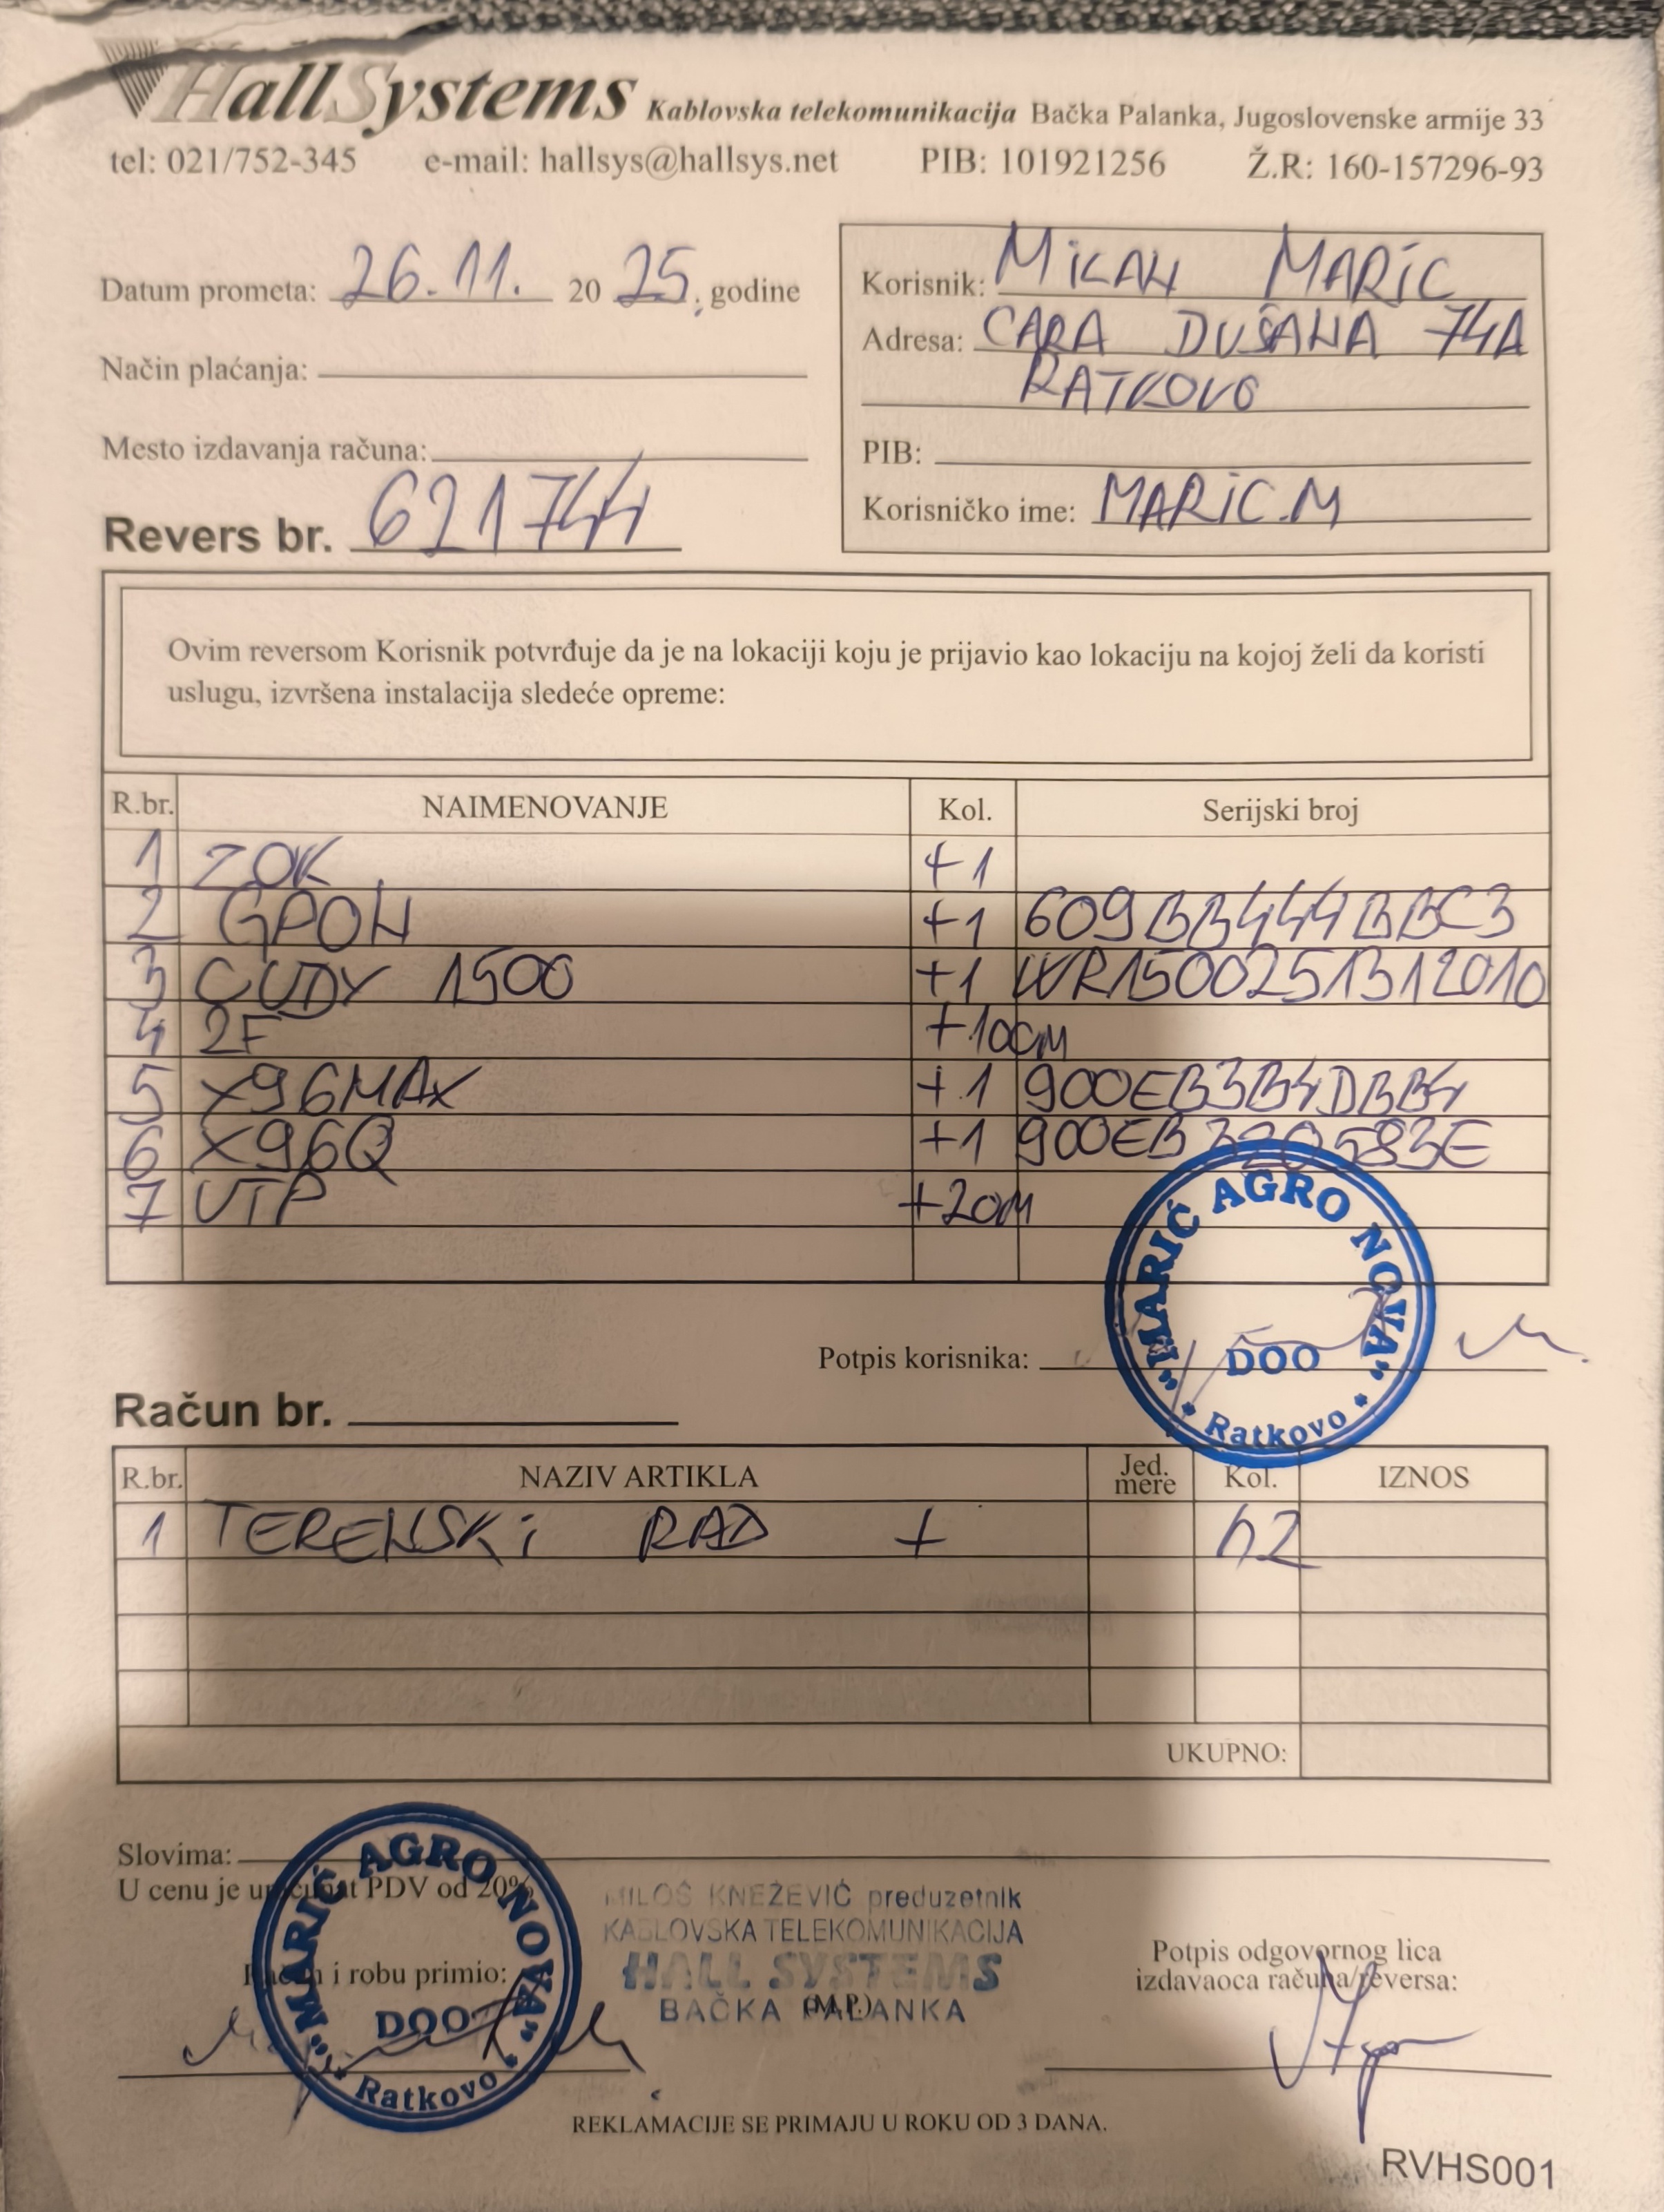 HallSystems Kablovska telekomunikacija Bačka Palanka, Jugoslovenske armije 33
tel: 021/752-345 e-mail: hallsys@hallsys.net PIB: 101921256 Ž.R: 160-157296-93
Datum prometa: 26.11. 20 25. godine
Način plaćanja:
Mesto izdavanja računa:
Revers br. 621744
Korisnik: MiLAN MARiC
Adresa: CARA DUŠANA 74A
RATKOVO
PIB:
Korisničko ime: MARiC.M
Ovim reversom Korisnik potvrđuje da je na lokaciji koju je prijavio kao lokaciju na kojoj želi da koristi
uslugu, izvršena instalacija sledeće opreme:
R.br. NAIMENOVANJE Kol. Serijski broj
1 ZOK +1
2 GPON +1 609BB444BBC3
3 CUDY 1500 +1 WR1500251312010
4 2F +100M
5 X96MAX +1 900EB3B4DBB4
6 X96Q +1 900EB320583E
7 UTP +20M
Potpis korisnika:
"MARIĆ AGRO NOVA"
DOO
Ratkovo
Račun br.
R.br. NAZIV ARTIKLA Jed. mere Kol. IZNOS
1 TERENSKi RAD + h2
UKUPNO:
Slovima:
U cenu je uračunat PDV od 20%
Račun i robu primio:
"MARIĆ AGRO NOVA"
DOO
Ratkovo
MILOŠ KNEŽEVIĆ preduzetnik
KABLOVSKA TELEKOMUNIKACIJA
HALL SYSTEMS
BAČKA PALANKA
(M.P.)
Potpis odgovornog lica
izdavaoca računa/reversa:
REKLAMACIJE SE PRIMAJU U ROKU OD 3 DANA.
RVHS001